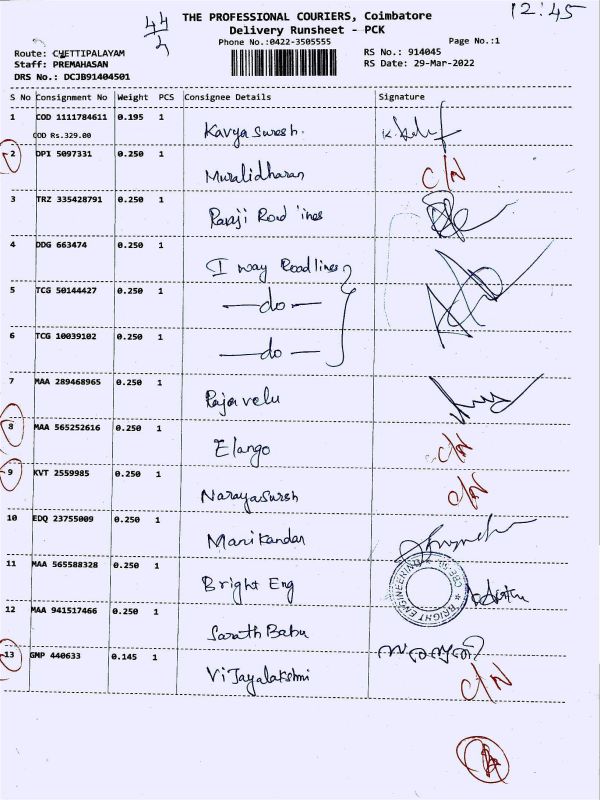 12:45
44/4
THE PROFESSIONAL COURIERS, Coimbatore
Delivery Runsheet - PCK
Phone No.:0422-3505555
Page No.:1
Route: CHETTIPALAYAM
Staff: PREMAHASAN
DRS No.: DCJB91404501
RS No.: 914045
RS Date: 29-Mar-2022
S No Consignment No Weight PCS Consignee Details Signature
1 COD 1111784611 0.195 1 Kavya Suresh.
COD Rs.329.00
2 DPI 5097331 0.250 1 Muralidharan C/N
3 TRZ 335428791 0.250 1 Road lines
4 DDG 663474 0.250 1 I way Roadlines
5 TCG 50144427 0.250 1 —do—
6 TCG 10039102 0.250 1 —do—
7 MAA 289468965 0.250 1 Rajavelu
8 MAA 565252616 0.250 1 Elango C/N
9 KVT 2559985 0.250 1 Narayasuresh C/N
10 EDQ 23755009 0.250 1 Manikandan
11 MAA 565588328 0.250 1 Bright Eng
BRIGHT ENGINEERING ★ CBE-
12 MAA 941517466 0.250 1 Sarath Babu
13 GMP 440633 0.145 1 Vijayalakshmi C/N